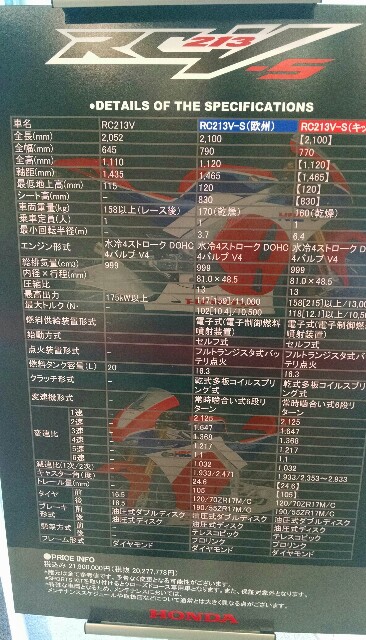 RC213V-S
●DETAILS OF THE SPECIFICATIONS
車名 RC213V RC213V-S(欧州) RC213V-S(キッ
全長(mm) 2,052 2,100 【2,100】
全幅(mm) 645 790 770
全高(mm) 1,110 1,120 【1,120】
軸距(mm) 1,435 1,465 【1,465】
最低地上高(mm) 115 120 【120】
シート高(mm) - 830 【830】
車両重量(kg) 158以上(レース後) 170(乾燥) 160(乾燥)
乗車定員(人) - 1
最小回転半径(m) - 3.7 6.4
エンジン形式 水冷4ストローク DOHC 4バルブ V4 水冷4ストローク DOHC 4バルブ V4 水冷4ストローク 4バルブ V4
総排気量(cm3) 999 999 999
内径×行程(mm) - 81.0×48.5 81.0×48.5
圧縮比 - 13 13
最高出力 175kW以上 117[159]/11,000 158[215]以上/13,0
最大トルク(N・ - 102[10.4]/10,500 118[12.1]以上/10,5
燃料供給装置形式 - 電子式(電子制御燃料噴射装置) 電子式(電子制御燃噴射装置)
始動方式 - セルフ式 セルフ式
点火装置形式 - フルトランジスタ式バッテリ点火 フルトランジスタ式バッテリ点火
燃料タンク容量(L) 20 16.3 16.3
クラッチ形式 - 乾式多板コイルスプリング式 乾式多板コイルスプリング式
変速機形式 - 常時噛合い式6段リターン 常時噛合い式6段リターン
変速比 1速 - 2.125 2.125
2速 - 1.647 1.647
3速 - 1.368 1.368
4速 - 1.217 1.217
5速 - 1.1 1.1
6速 - 1.032 1.032
減速比(1次/2次) - 1.933/2.471 1.933/2.353～2.933
キャスター角(度) - 24.6 【24.6】
トレール量(mm) - 105 【105】
タイヤ 前 16.5 120/70ZR17M/C 120/70ZR17M/C
後 16.5 190/55ZR17M/C 190/55ZR17M/C
ブレーキ形式 前 油圧式ダブルディスク 油圧式ダブルディスク 油圧式ダブルディスク
後 油圧式ディスク 油圧式ディスク 油圧式ディスク
懸架方式 前 - テレスコピック テレスコピック
後 - プロリンク プロリンク
フレーム形式 ダイヤモンド ダイヤモンド ダイヤモンド
●PRICE INFO
税込み 21,900,000円(税抜 20,277,778円)
HONDA